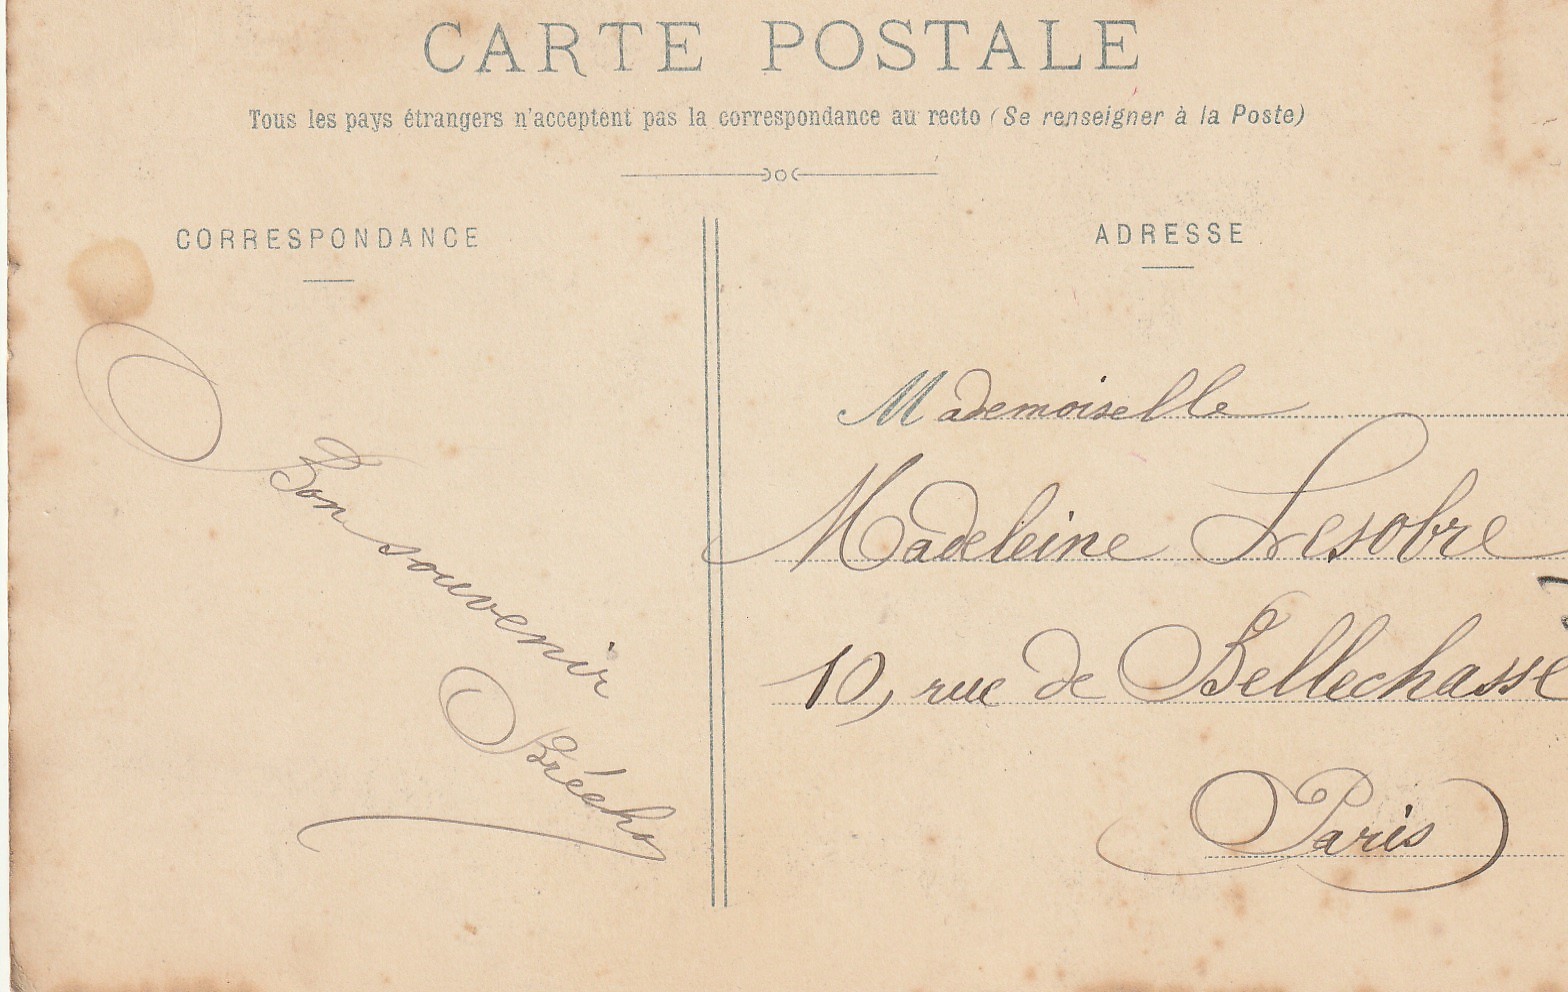 CARTE POSTALE
Tous les pays étrangers n'acceptent pas la correspondance au recto (Se renseigner à la Poste)
CORRESPONDANCE
Bon souvenir
ADRESSE
Mademoiselle
Madeleine Lesobre
10, rue de Bellechasse
Paris